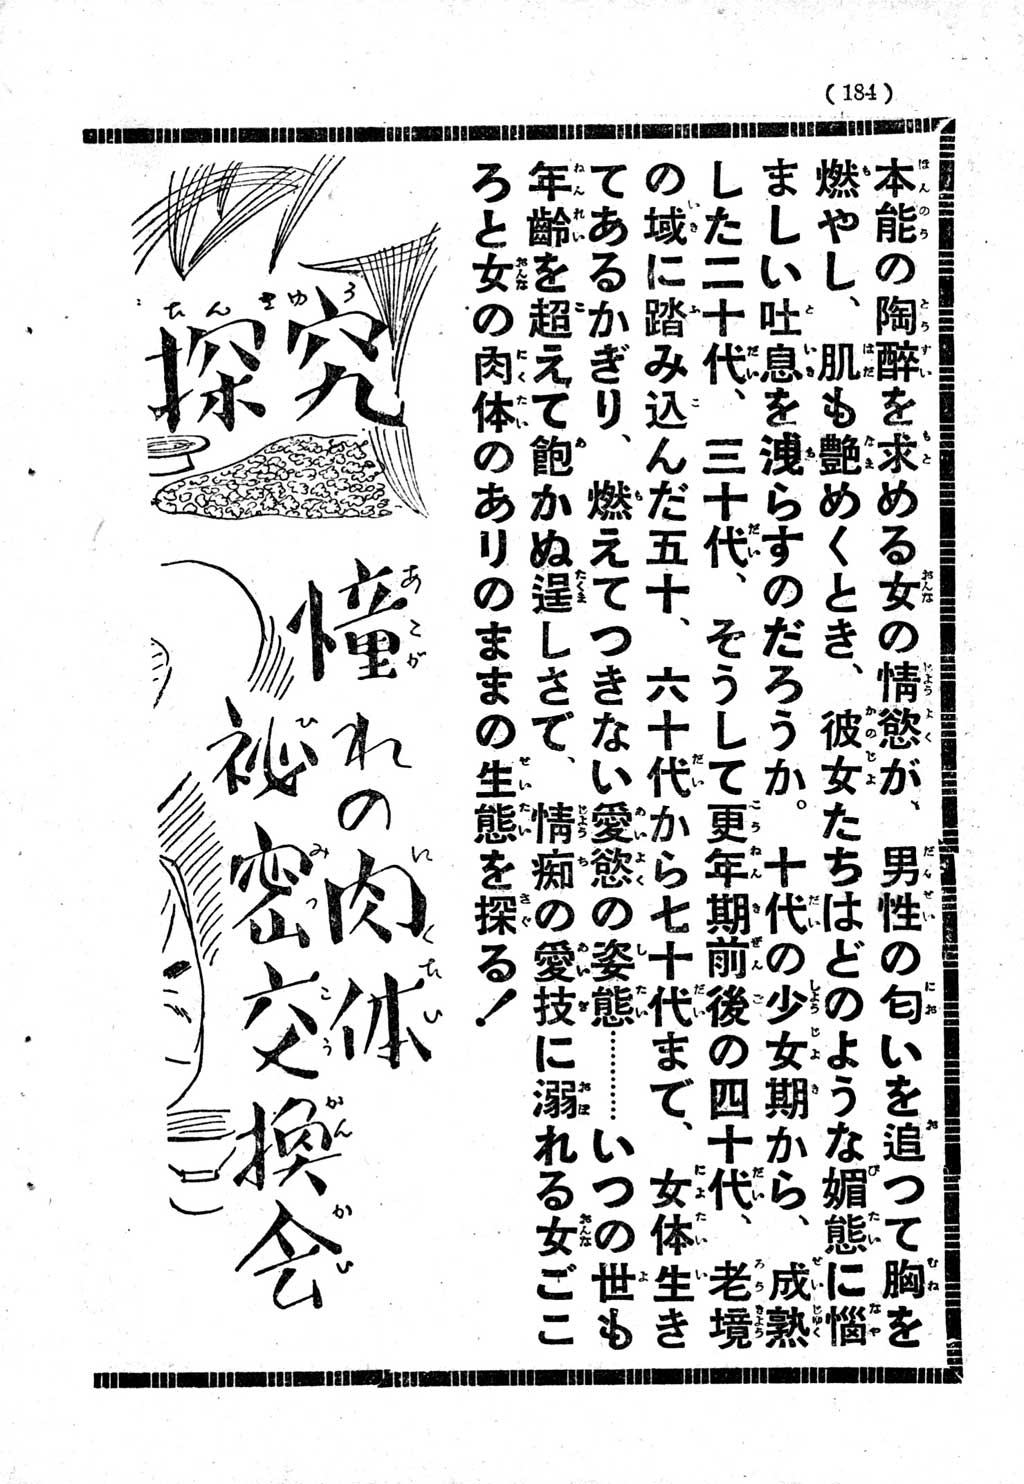 (184)
本能の陶醉を求める女の情慾が、男性の匂いを追つて胸を
燃やし、肌も艶めくとき、彼女たちはどのような媚態に惱
ましい吐息を洩らすのだろうか。十代の少女期から、成熟
した二十代、三十代、そうして更年期前後の四十代、老境
の域に踏み込んだ五十、六十代から七十代まで、女体生き
てあるかぎり、燃えてつきない愛慾の姿態………いつの世も
年齡を超えて飽かぬ逞しさで、情痴の愛技に溺れる女ごこ
ろと女の肉体のありのままの生態を探る！
探究
憧れの肉体
祕密交換会